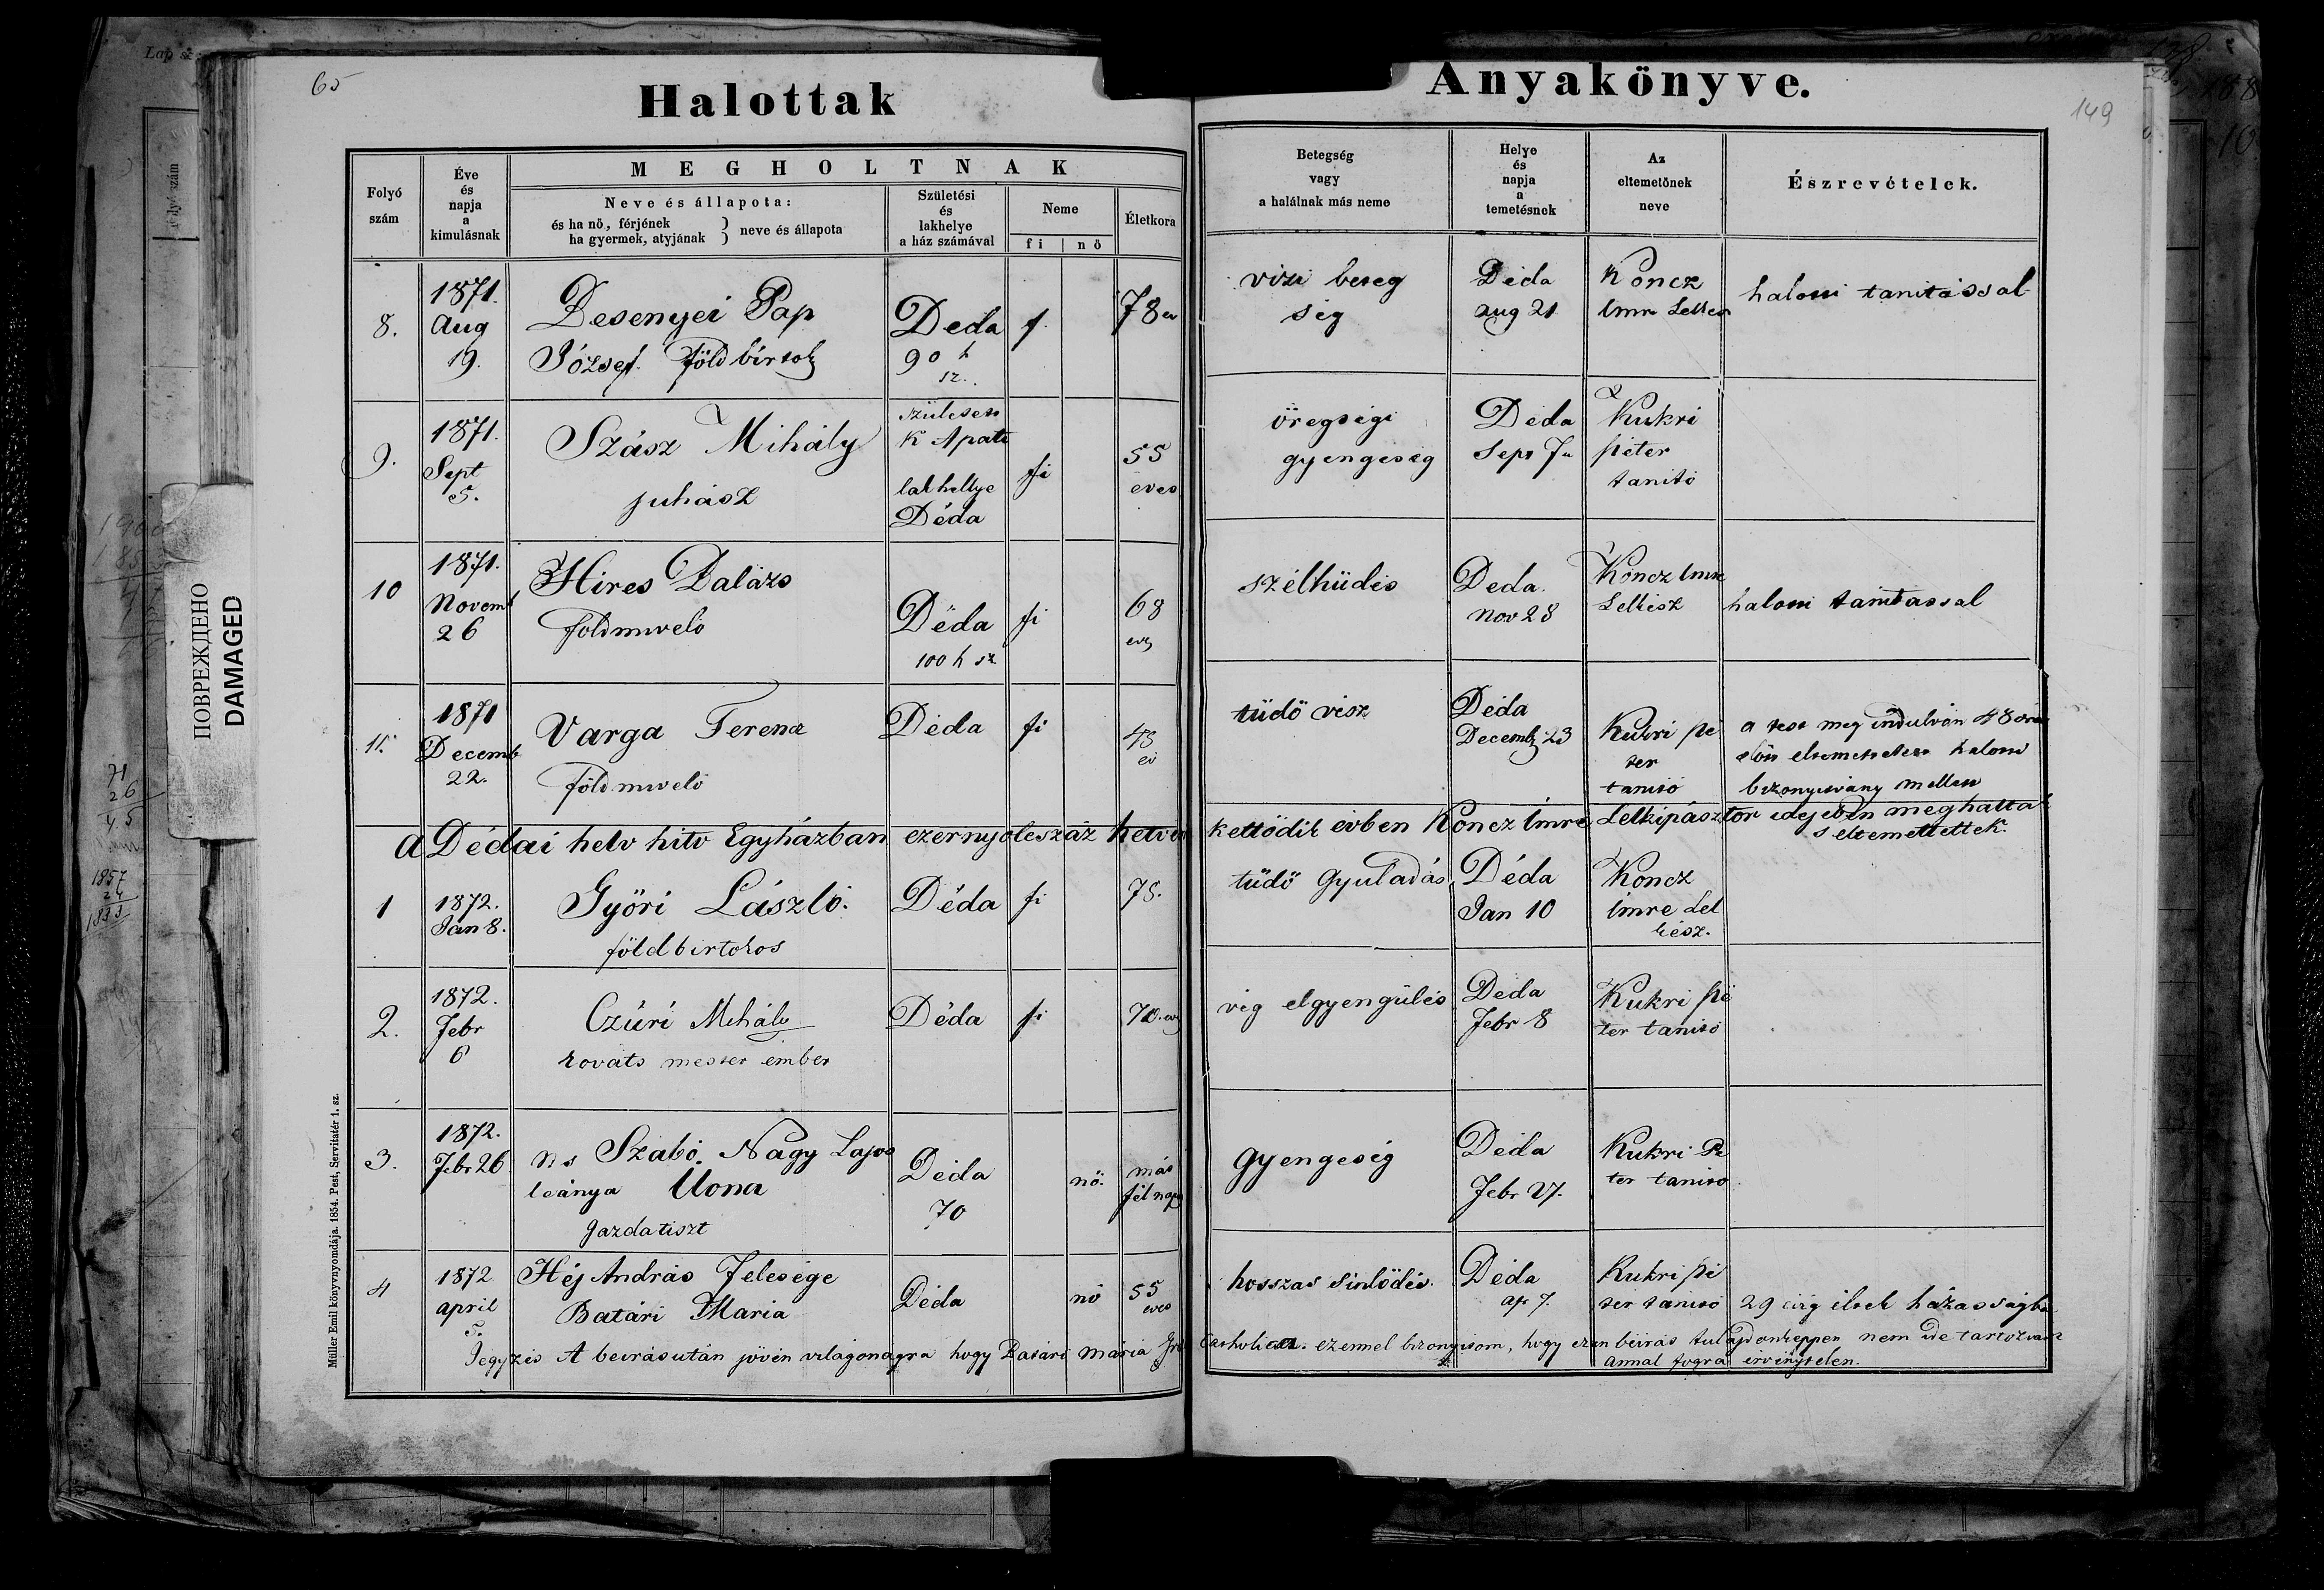 65
149
Halottak Anyakönyve.
Folyó szám
Éve és napja a kimulásnak
MEGHOLTNAK
Neve és állapota:
és ha nő, férjének
ha gyermek, atyjának } neve és állapota
Születési és lakhelye a ház számával
Neme
fi | nő
Életkora
Betegség vagy a halálnak más neme
Helye és napja a temetésnek
Az eltemetőnek neve
Észrevételek.
8.
1871.
Aug
19.
Desenyei Pap
József. földbirtok
Deda
90 h
sz.
f.
78 ev
vizi beteg
ség
Déda
aug 21
Koncz
Imre Lelkes
halotti tanitással
9.
1871.
Sept
5.
Szász Mihály
juhász
születesen
K Apati
lakhellye
Déda
fi
55
eves
öregségi
gyengeség
Déda
Sept 7n
Kukri
péter
tanitó
10
1871.
Novemb
26
Híres Balázs
földmivelö
Déda
100 h sz
fi
68
ev
szélhüdés
Deda.
Nov 28
Koncz Imre
Lelkész
halotti tanitassal
11.
1871
Decemb
22.
Varga Ferencz
földmivelö
Déda
fi
43
év
tüdö vész
Déda
Decemb 23
Kukri pé
ter
tanitó
a test meg indulván 48 ora
elött eltemettetett halotti
bizonyitvány mellett
A Dédai helv hitv Egyházban ezernyolcszáz hetven kettödik évben Koncz Imre Lelkipásztor idejében meghaltak
s eltemettettek.
1
1872.
Jan 8.
Györi László.
földbirtokos
Déda
fi
78.
tüdö gyuladás
Déda
Jan 10
Koncz
Imre Lel
kész.
2.
1872.
Febr
6
Czúri Mihály
kováts mester ember
Déda
fi
70. ev
vég elgyengülés
Déda
Febr 8
Kukri Pé
ter tanitó
3.
1872.
Febr 26
Ns Szabó Nagy Lajos
leánya Ilona
gazdatiszt
Déda
70
nö.
más
fél napos
gyengeség
Déda
Febr 27.
Kukri Pé
ter tanitó
4
1872
april
5.
Héj András Felesége
Batári Maria
Déda
nö
55
eves
hosszas sinlödés.
Déda
apr 7.
Kukri pé
ter tanitó
29 évig éltek házasságba
Jegyzés A beirás után jövén világonságra hogy Batári Mária catholica. ezennel bizonyitom, hogy ezen béirás tulajdonképpen nem ide tartozván
annal fogva érvénytelen.
Müller Emil könyvnyomdája. 1854. Pest, Servitatér 1. sz.
ПОВРЕЖДЕНО
DAMAGED
71
26
45
1857
24
1833